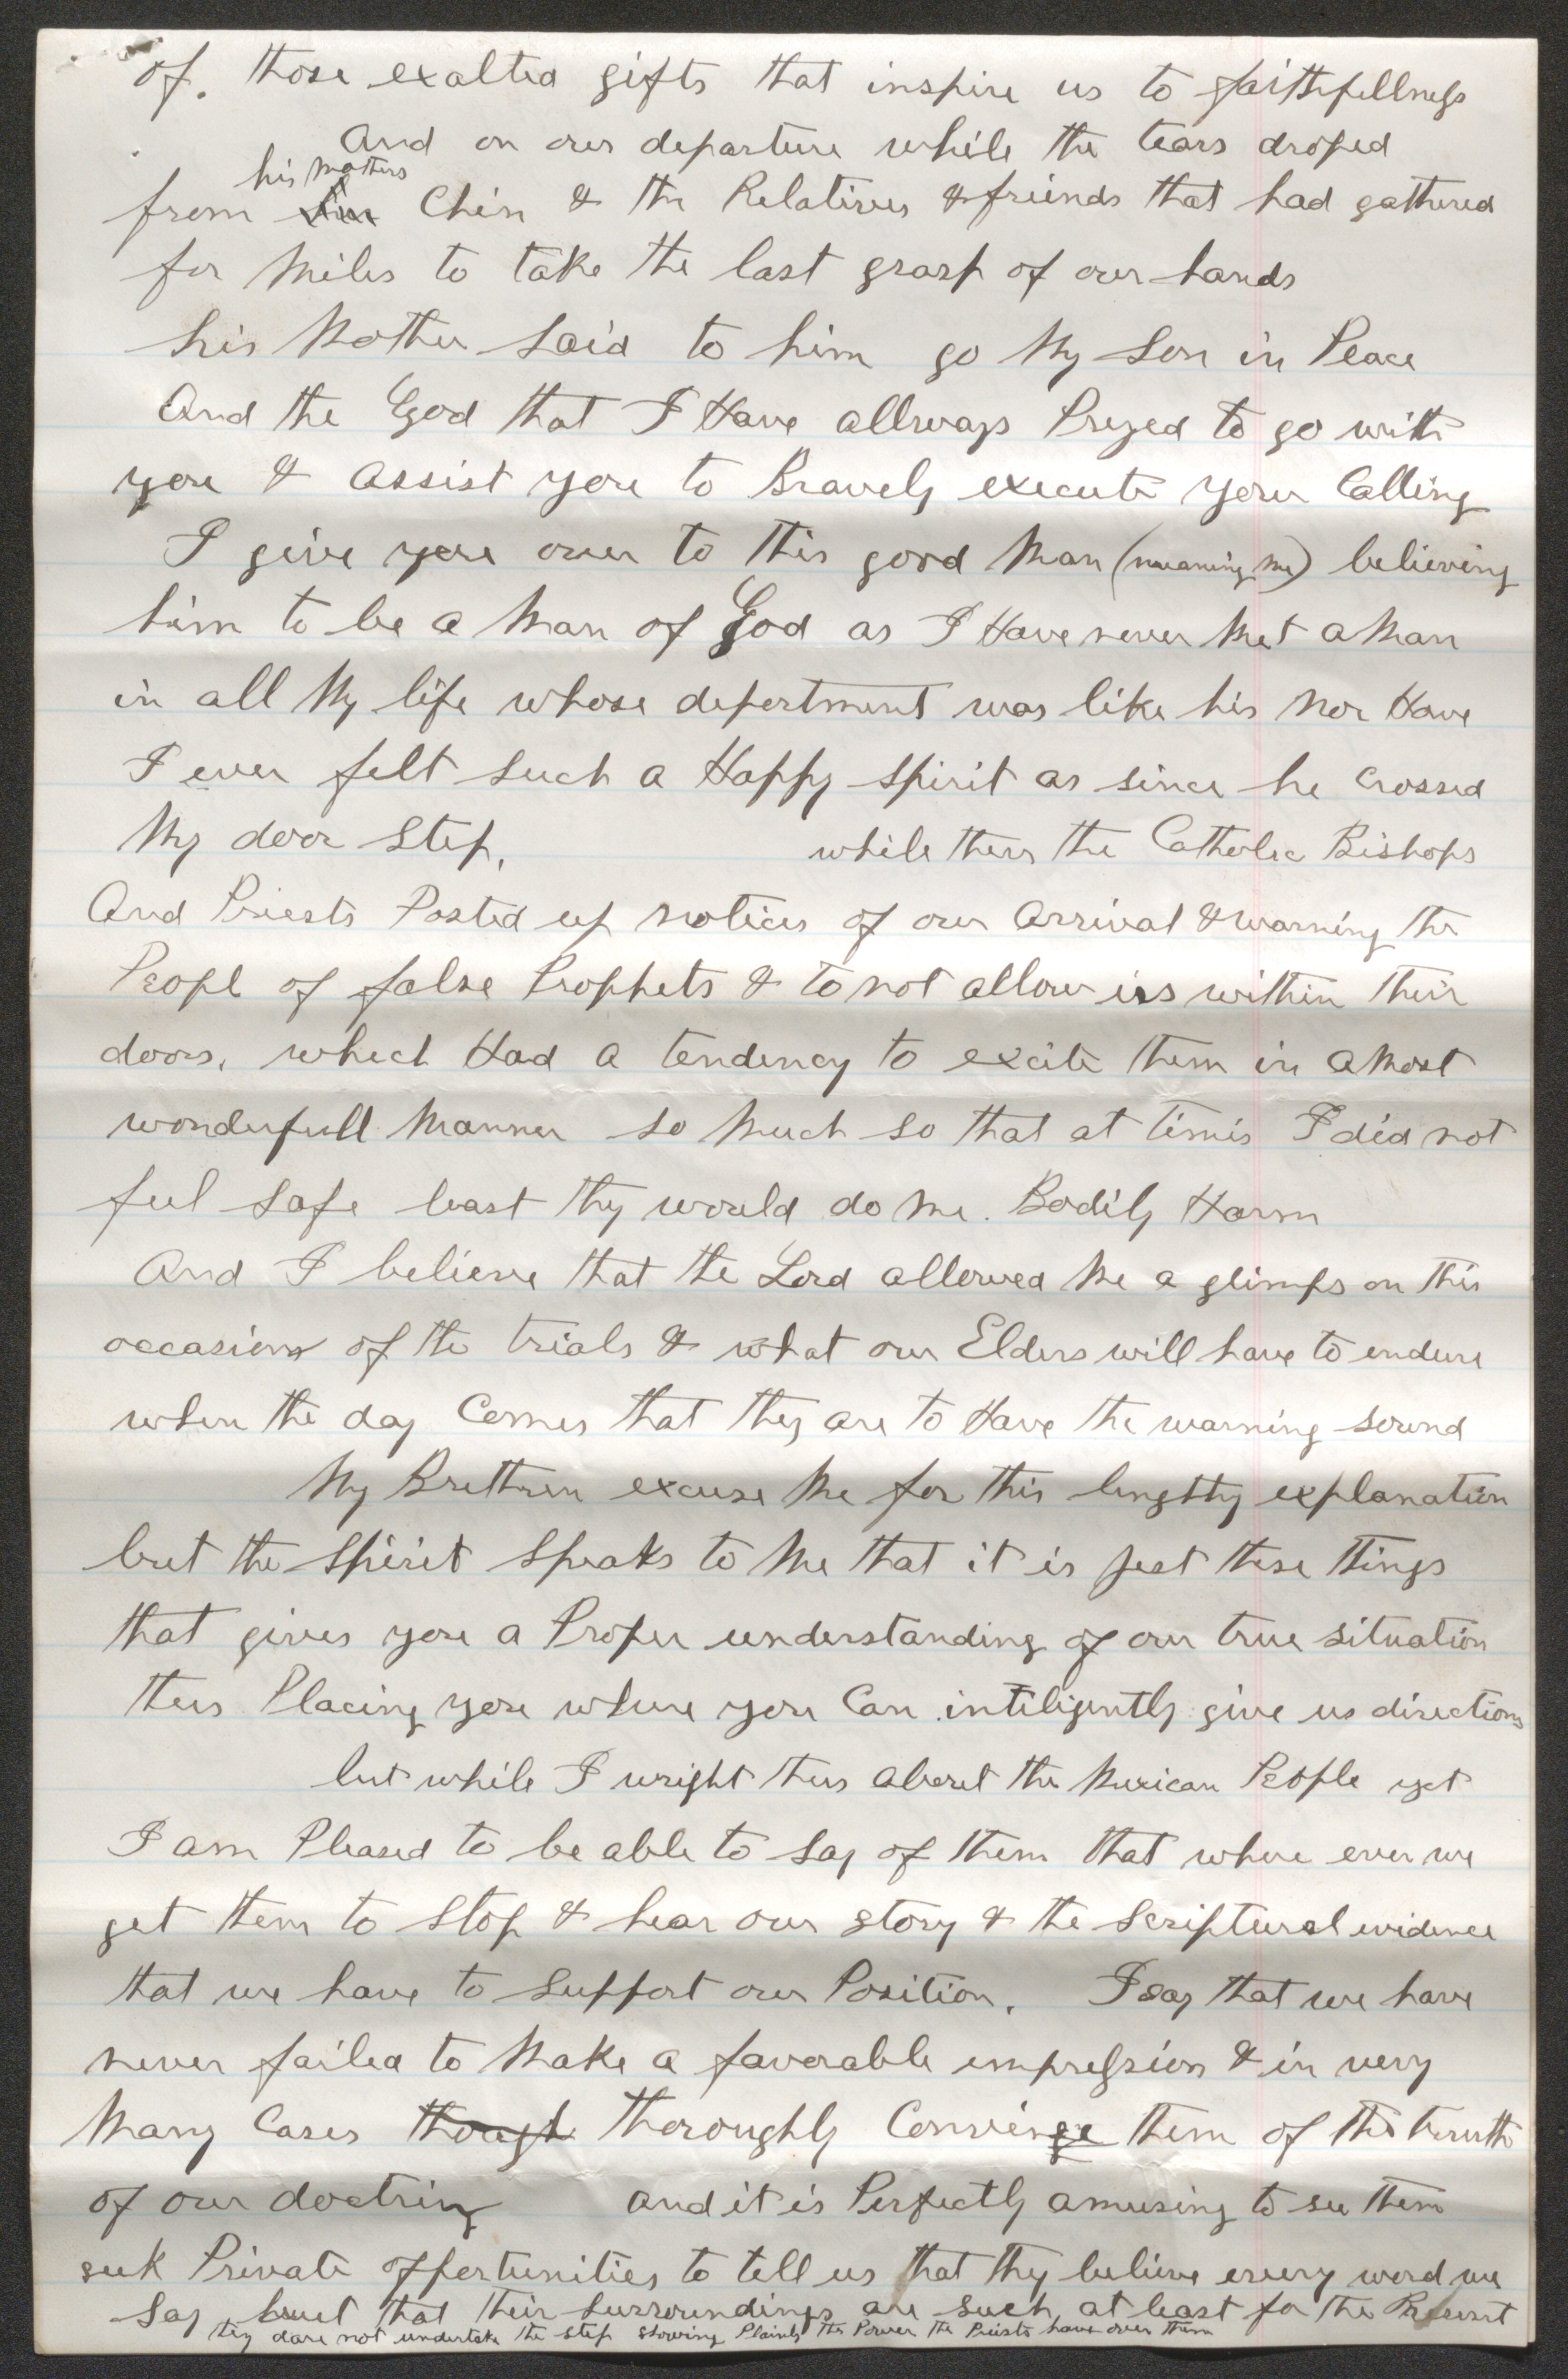 of. those exalted gifts that inspire us to faithfullness
And on our departure while the tears droped
his mothers
from her Chin & the Relatives & friends that had gathered
for Miles to take the last grasp of our hands
his Mother Said to him go My Son in Peace
And the God that I Have allways Preyed to go with
you & assist you to Bravely execute your Calling
I give you over to this good Man (meaning me) believing
him to be a Man of God as I Have never Met a Man
in all My life whose deportment was like his Nor Have
I ever felt Such a Happy Spirit as since he Crossed
My door Step. while there the Catholic Bishops
And Priests Posted up Notices of our Arrival & warning the
Peopl of false Prophets & to not allow us within their
doors. which Had a tendency to excite them in a Most
wonderfull Manner so Much so that at times I did not
feel Safe least they would do me. Bodily Harm
And I believe that the Lord allowed Me a glimps on this
occasion of the trials & what our Elders will have to endure
when the day Comes that they are to Have the warning sound
My Brethren excuse Me for this lengthy explanation
but the Spirit Speaks to Me that it is just these things
that gives you a Proper understanding of our true situation
thus Placing you where you Can inteligently give us directions
but while I wright thus about the Mexican People yet
I am Pleased to be able to Say of them that where ever we
get them to Stop & hear our story & the Scriptural evidence
that we have to Support our Position. I say that we have
never failed to Make a favorable impression & in very
Many Cases though thoroughly Convince them of the truth
of our doctrin and it is Perfectly amusing to see them
seek Private oppertunities to tell us that they believe every word we
Say but that their Surroundings are Such, at least for the Present
they dare not undertake the step showing Plainly the Power the Priests have over them